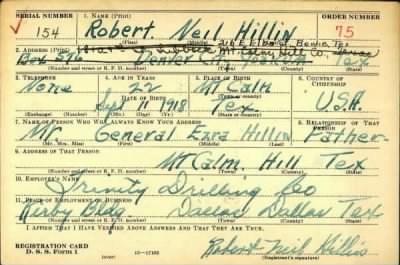 SERIAL NUMBER 1. NAME (Print) ORDER NUMBER
154 Robert Neil Hillin 75
(First) (Middle) (Last)
216 E. Elba St. Bowie, Tex
2. ADDRESS (Print) Mt Calm Hill Co. Texas
Box 596 Denver City Yoakum Tex
(Number and street or R. F. D. number) (Town) (County) (State)
3. TELEPHONE 4. AGE IN YEARS 5. PLACE OF BIRTH 6. COUNTRY OF CITIZENSHIP
None 22 Mt Calm
DATE OF BIRTH (Town or county)
Sept 11 1918 Tex U.S.A.
(Exchange) (Number) (Mo.) (Day) (Yr.) (State or country)
7. NAME OF PERSON WHO WILL ALWAYS KNOW YOUR ADDRESS 8. RELATIONSHIP OF THAT PERSON
Mr. General Ezra Hillin Father
(Mr., Mrs., Miss) (First) (Middle) (Last)
9. ADDRESS OF THAT PERSON
Mt Calm, Hill Tex
(Number and street or R. F. D. number) (Town) (County) (State)
10. EMPLOYER'S NAME
Trinity Drilling Co
11. PLACE OF EMPLOYMENT OR BUSINESS
Kirby Bldg. Dallas Dallas Tex
(Number and street or R. F. D. number) (Town) (County) (State)
I AFFIRM THAT I HAVE VERIFIED ABOVE ANSWERS AND THAT THEY ARE TRUE.
REGISTRATION CARD
D. S. S. Form 1 (over) 16—17105
Robert Neil Hillin
(Registrant's signature)